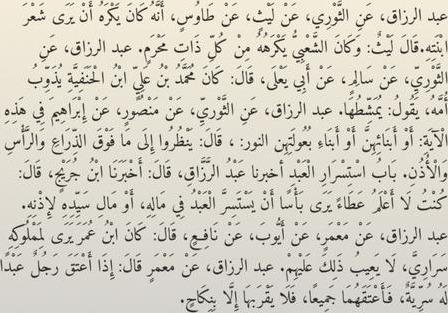 عبد الرزاق، عَنِ الثَّوْرِي، عَنْ لَيْثٍ، عَنْ طَاوُسٍ، أَنَّهُ كَانَ يَكْرَهُ أَنْ يَرَى شَعْرَ
ابْنَتِهِ.قَالَ لَيْثٌ: وَكَانَ الشَّعْبِيُّ يَكْرَهُهُ مِنْ كُلِّ ذَاتِ مَحْرَمٍ. عبد الرزاق، عَنِ
الثَّوْرِيِّ، عَنْ سَالِمٍ، عَنْ أَبِي يَعْلَى، قَالَ: كَانَ مُحَمَّدُ بْنُ عَلِيِّ ابْنُ الْحَنَفِيَّةِ يُذَوِّبُ
أُمَّهُ، يَقُولُ: يُمَشِّطُهَا. عبد الرزاق، عَنِ الثَّوْرِيِّ، عَنْ مَنْصُورٍ، عَنْ إِبْرَاهِيمَ فِي هَذِهِ
الْآيَةِ: أَوْ أَبْنَائِهِنَّ أَوْ أَبْنَاءِ بُعُولَتِهِنَّ النور: ، قَالَ: يَنْظُرُوا إِلَى مَا فَوْقَ الذِّرَاعِ وَالرَّأْسِ
وَالْأُذُنِ. بَابُ اسْتِسْرَارِ الْعَبْدِ أخبرنا عَبْدُ الرَّزَّاقِ، قَالَ: أَخْبَرَنَا ابْنُ جُرَيْجٍ، قَالَ:
كُنْتُ لَا أَعْلَمُ عَطَاءً يَرَى بَأْسًا أَنْ يَسْتَسِرَّ الْعَبْدُ فِي مَالِهِ، أَوْ مَالِ سَيِّدِهِ لِإِذْنِهِ.
عبد الرزاق، عَنْ مَعْمَرٍ، عَنْ أَيُّوبَ، عَنْ نَافِعٍ، قَالَ: كَانَ ابْنُ عُمَرَ يَرَى لِمَمْلُوكِهِ
سَرَارِيَّ، لَا يَعِيبُ ذَلِكَ عَلَيْهِمْ. عبد الرزاق، عَنْ مَعْمَرٍ قَالَ: إِذَا أَعْتَقَ رَجُلٌ عَبْدًا
لَهُ سُرِّيَّةٌ، فَأَعْتَقَهُمَا جَمِيعًا، فَلَا يَقْرَبْهَا إِلَّا بِنِكَاحٍ.